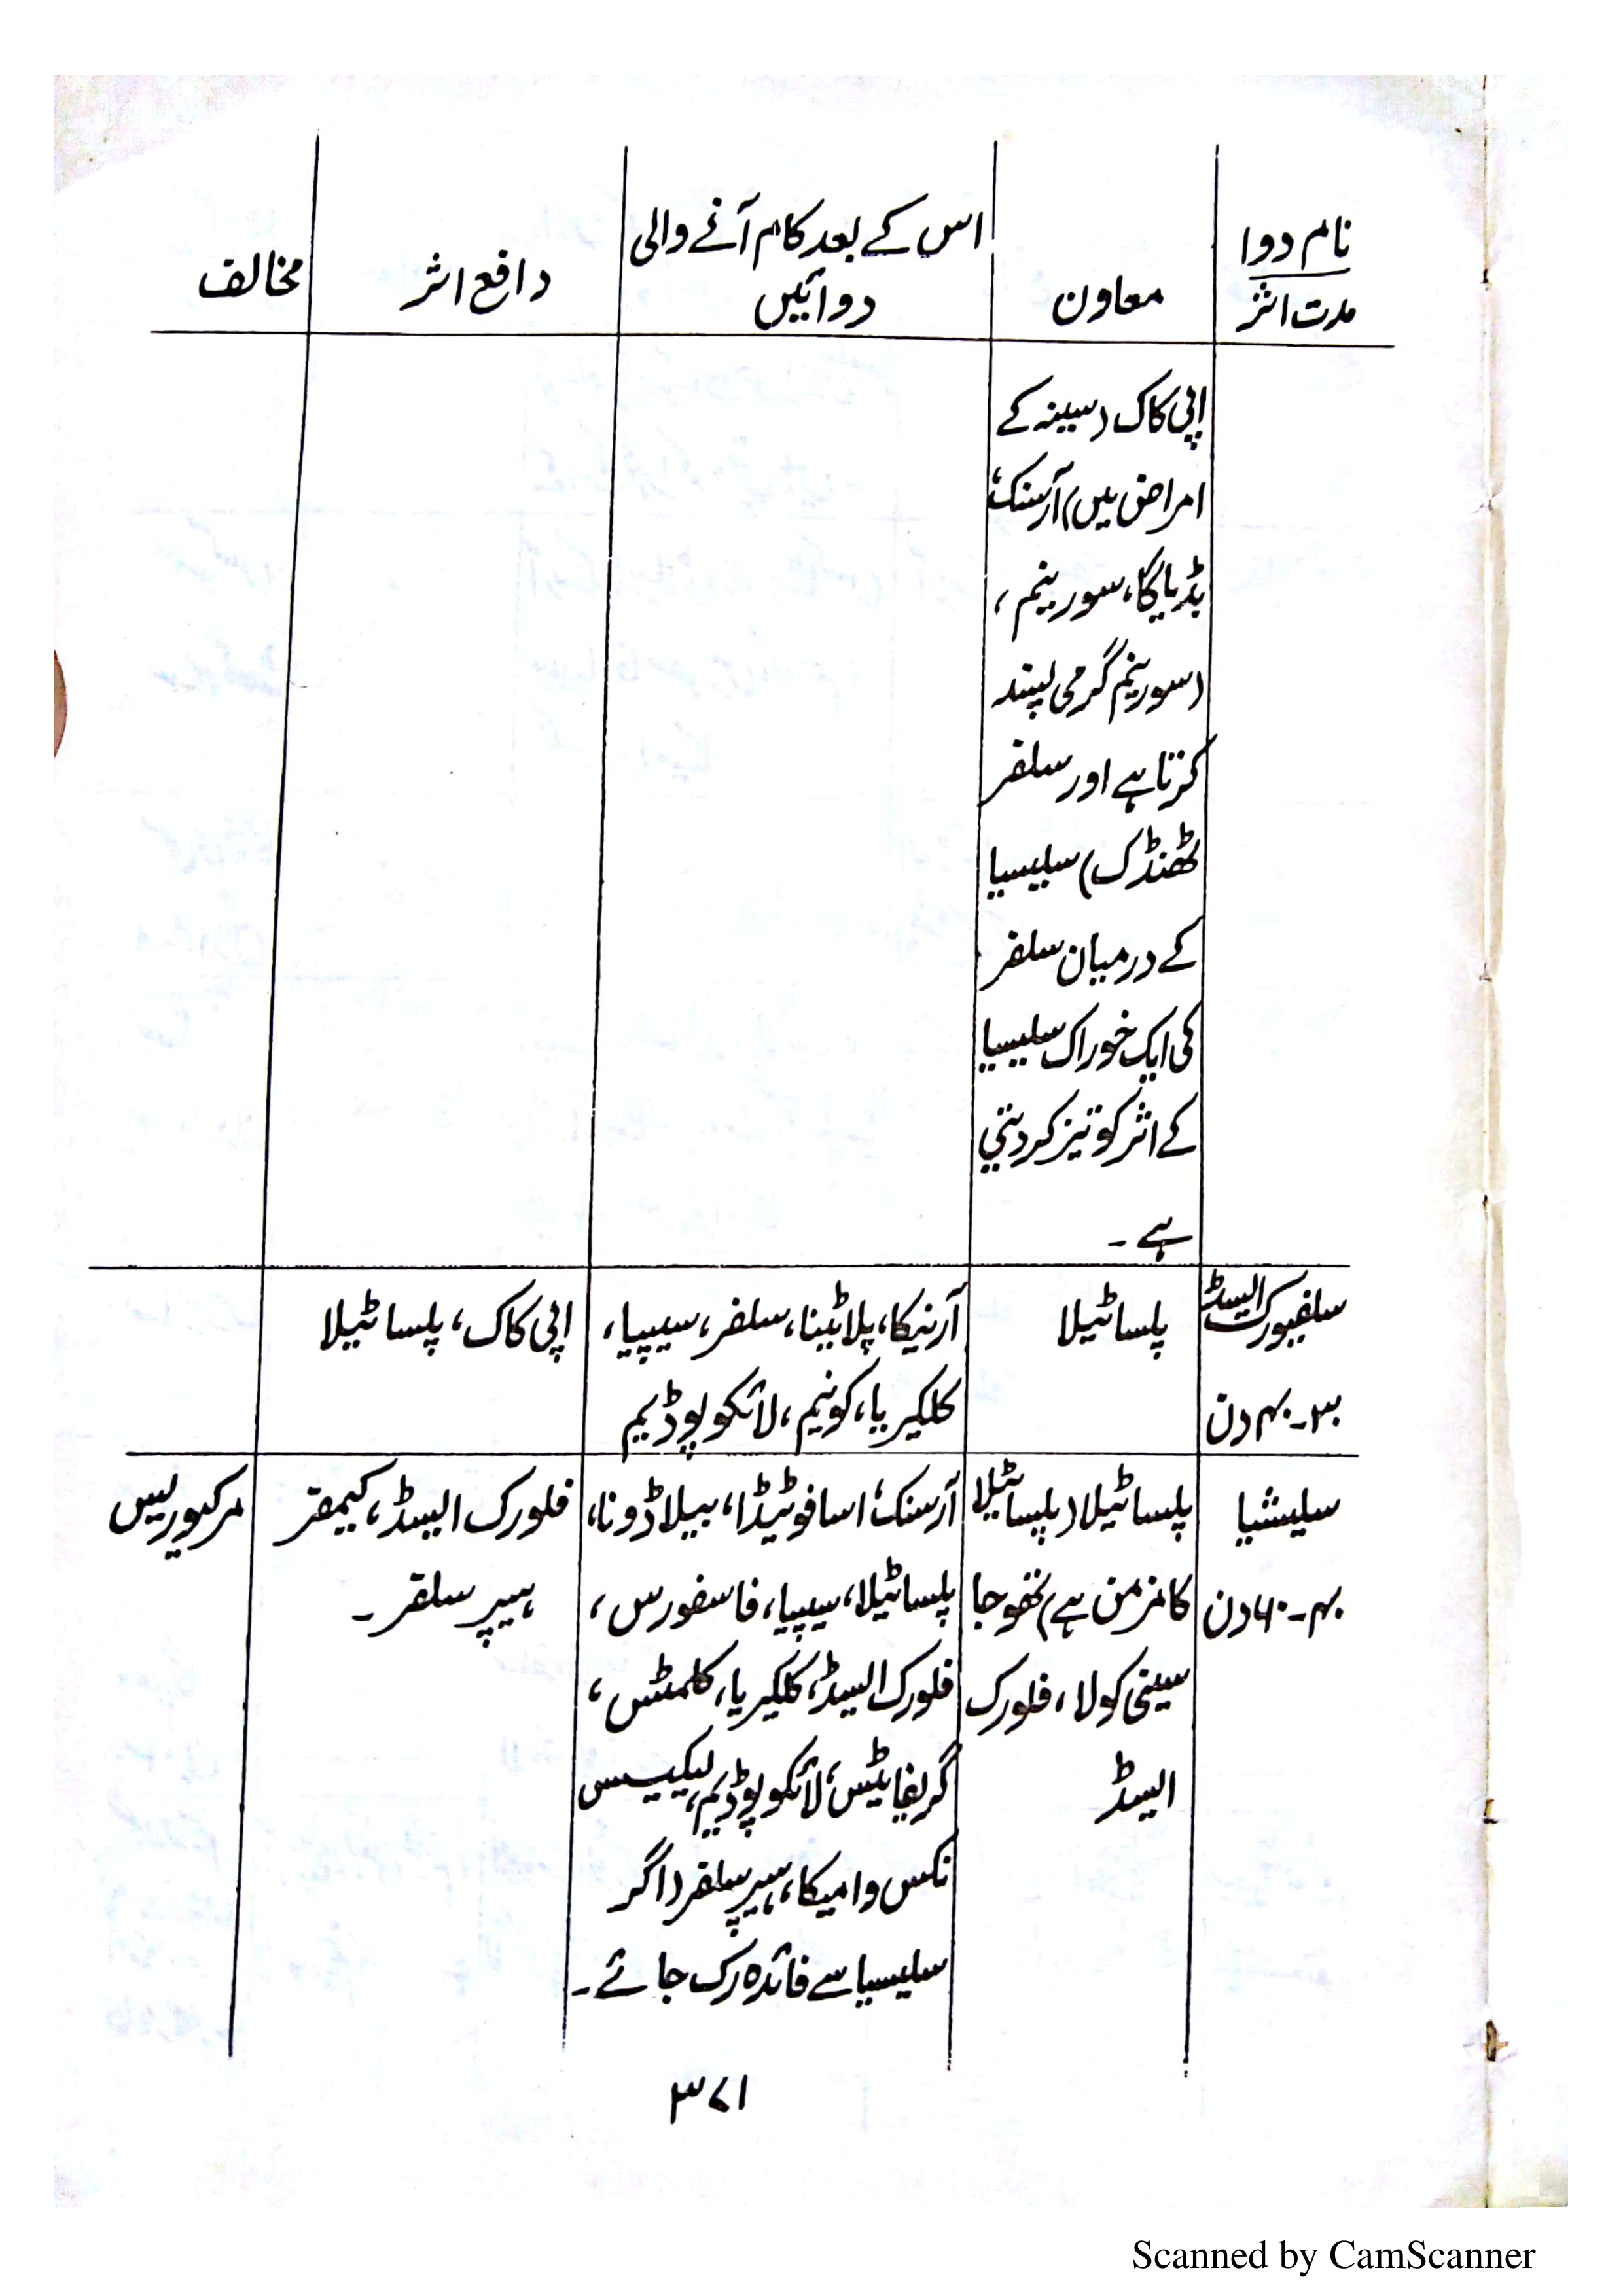 نام دوا
مدت اثر
معاون
اس کے بعد کام آنے والی
دوائیں
دافع اثر
مخالف
اپی کاک (سینہ کے
امراض میں) آرسنک،
بڈیاگا، سورینم،
(سورینم گرمی پسند
کرتا ہے اور سلفر
ٹھنڈک) سلیسیا
کے درمیان سلفر
کی ایک خوراک سلیسیا
کے اثر کو تیز کر دیتی
ہے۔
سلفیورک ایسڈ
۳۰-۴۰ دن
پلساٹیلا
آرنیکا، پلاٹینا، سلفر، سیپیا،
کلکیریا، کونیم، لائکوپوڈیم
اپی کاک، پلساٹیلا
سلیشیا
۴۰-۶۰ دن
پلساٹیلا (پلساٹیلا
کا مزمن ہے) تھوجا
سینی کولا، فلورک
ایسڈ
آرسنک، اسافوٹیڈا، بیلاڈونا،
پلساٹیلا، سیپیا، فاسفورس،
فلورک ایسڈ، کلکیریا، کلمٹس،
گریفائٹس، لائکوپوڈیم، لیکیسس
نکس وامیکا، ہیپر سلفر (اگر
سلیسیا سے فائدہ رک جائے۔
فلورک ایسڈ، کیمفر
ہیپر سلفر۔
مرکیوریس
۳۷۱
Scanned by CamScanner